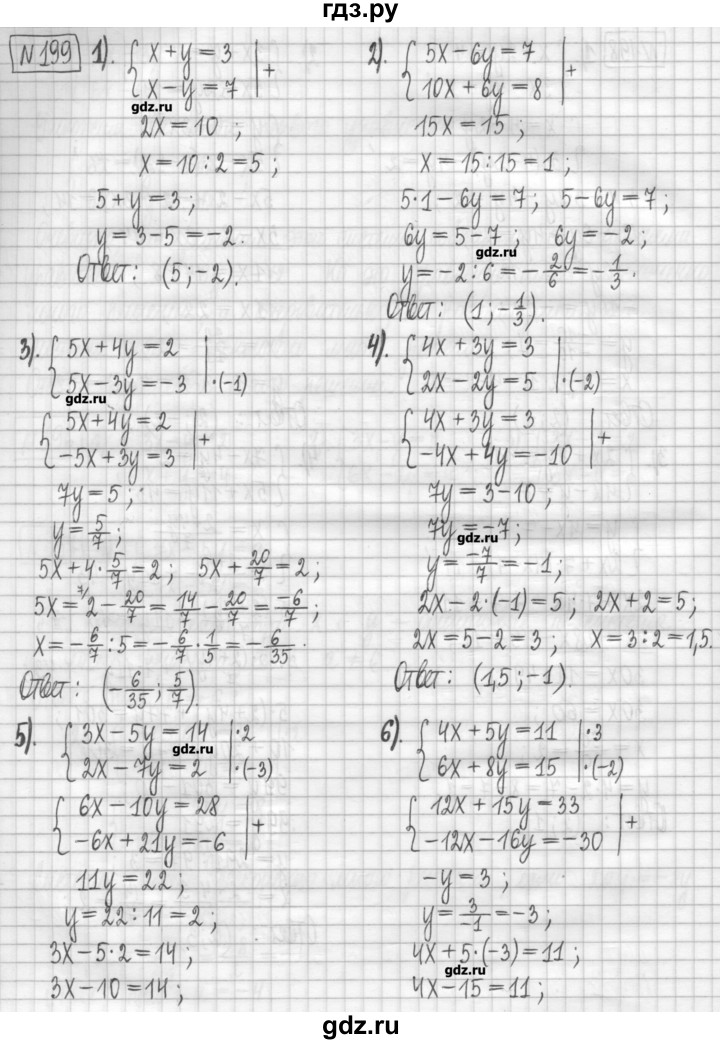 гдз.ру
№199 1). { x + y = 3
x − y = 7 | +
gdz.ru
2x = 10 ;
x = 10 : 2 = 5 ;
5 + y = 3 ;
y = 3 − 5 = −2.
Ответ: (5 ; −2).
2). { 5x − 6y = 7
10x + 6y = 8 | +
15x = 15 ;
x = 15 : 15 = 1 ;
5·1 − 6y = 7 ; 5 − 6y = 7 ;
6y = 5 − 7 ; 6y = −2 ;
gdz.ru
y = −2 : 6 = −2/6 = −1/3.
Ответ: (1 ; −1/3).
3). { 5x + 4y = 2
5x − 3y = −3 | ·(−1)
gdz.ru
{ 5x + 4y = 2
−5x + 3y = 3 | +
7y = 5 ;
y = 5/7 ;
5x + 4·5/7 = 2 ; 5x + 20/7 = 2 ;
5x = 7/2 − 20/7 = 14/7 − 20/7 = −6/7 ;
x = −6/7 : 5 = −6/7 · 1/5 = −6/35.
Ответ: (−6/35 ; 5/7).
4). { 4x + 3y = 3
2x − 2y = 5 | ·(−2)
{ 4x + 3y = 3
−4x + 4y = −10 | +
7y = 3 − 10 ;
7y = −7 ;
gdz.ru
y = −7/7 = −1 ;
2x − 2·(−1) = 5 ; 2x + 2 = 5 ;
2x = 5 − 2 = 3 ; x = 3 : 2 = 1,5.
Ответ: (1,5 ; −1).
5). { 3x − 5y = 14 | ·2
gdz.ru
2x − 7y = 2 | ·(−3)
{ 6x − 10y = 28
−6x + 21y = −6 | +
11y = 22 ;
y = 22 : 11 = 2 ;
3x − 5·2 = 14 ;
3x − 10 = 14 ;
6). { 4x + 5y = 11 | ·3
6x + 8y = 15 | ·(−2)
{ 12x + 15y = 33
−12x − 16y = −30 | +
−y = 3 ;
y = 3/−1 = −3 ;
4x + 5·(−3) = 11 ;
gdz.ru
4x − 15 = 11 ;
gdz.ru